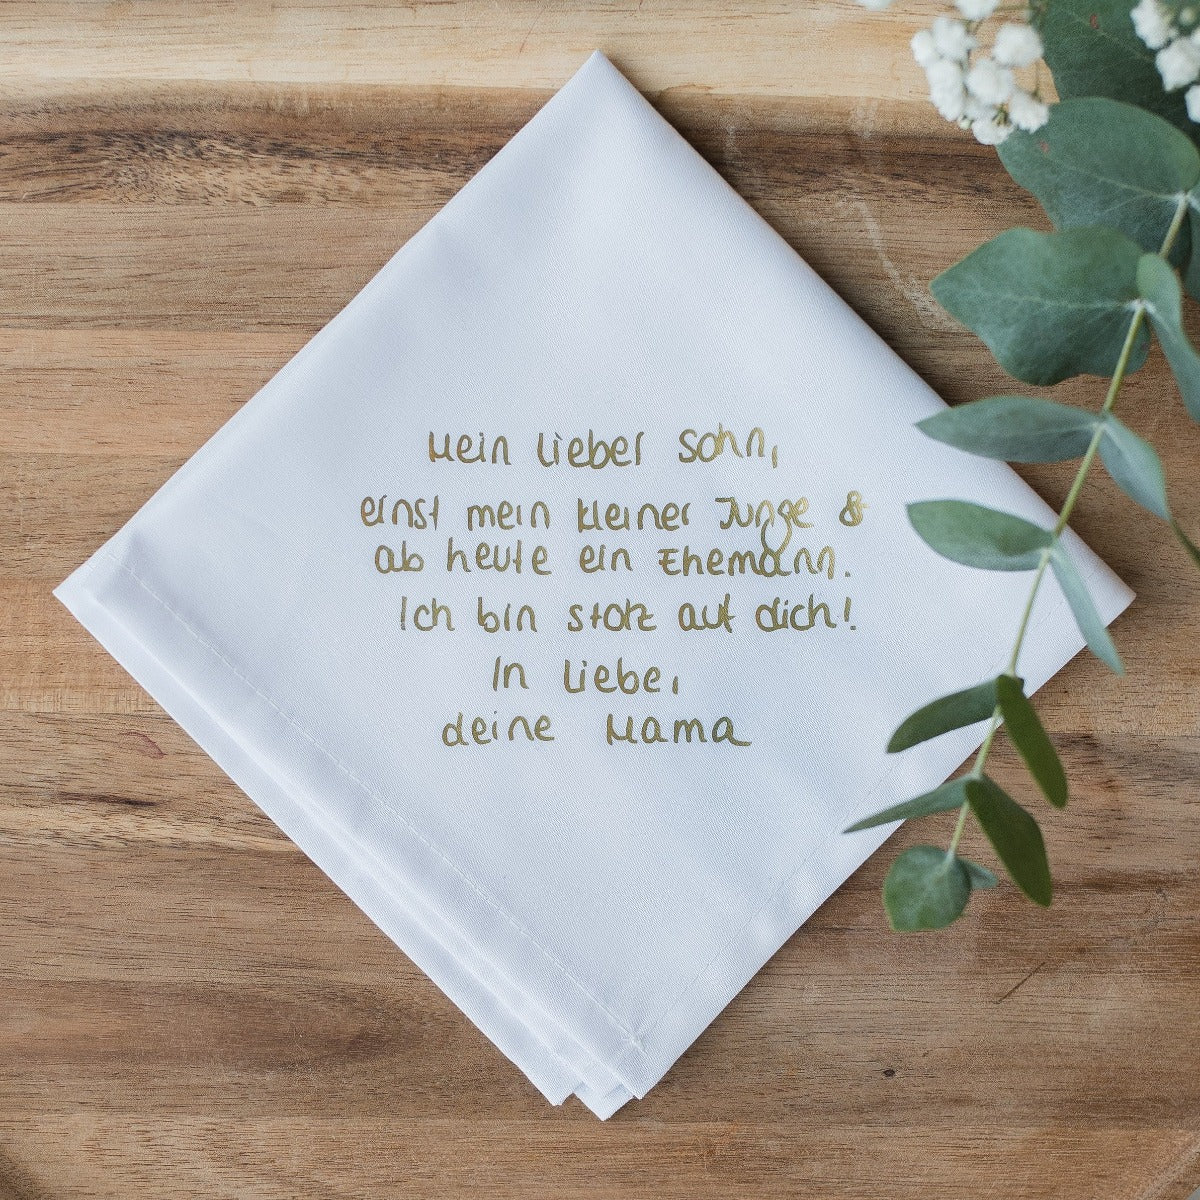 Mein lieber Sohn,
einst mein kleiner Junge &
ab heute ein Ehemann.
Ich bin stolz auf dich!
In Liebe,
deine Mama